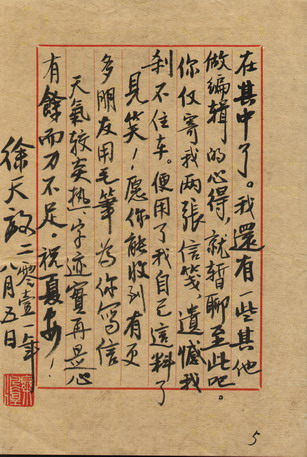 在其中了。我還有一些其他
做編輯的心得,就暫聊至此吧。
你仅寄我两張信笺,遺憾我
刹不住车。便用了我自己這料了
見笑!愿你能收到有更
多朋友用毛筆為你寫信
天氣較炎热,字迹實再是心
有餘而力不足。祝夏安!
徐天政 二零壹一年
八月五日
5